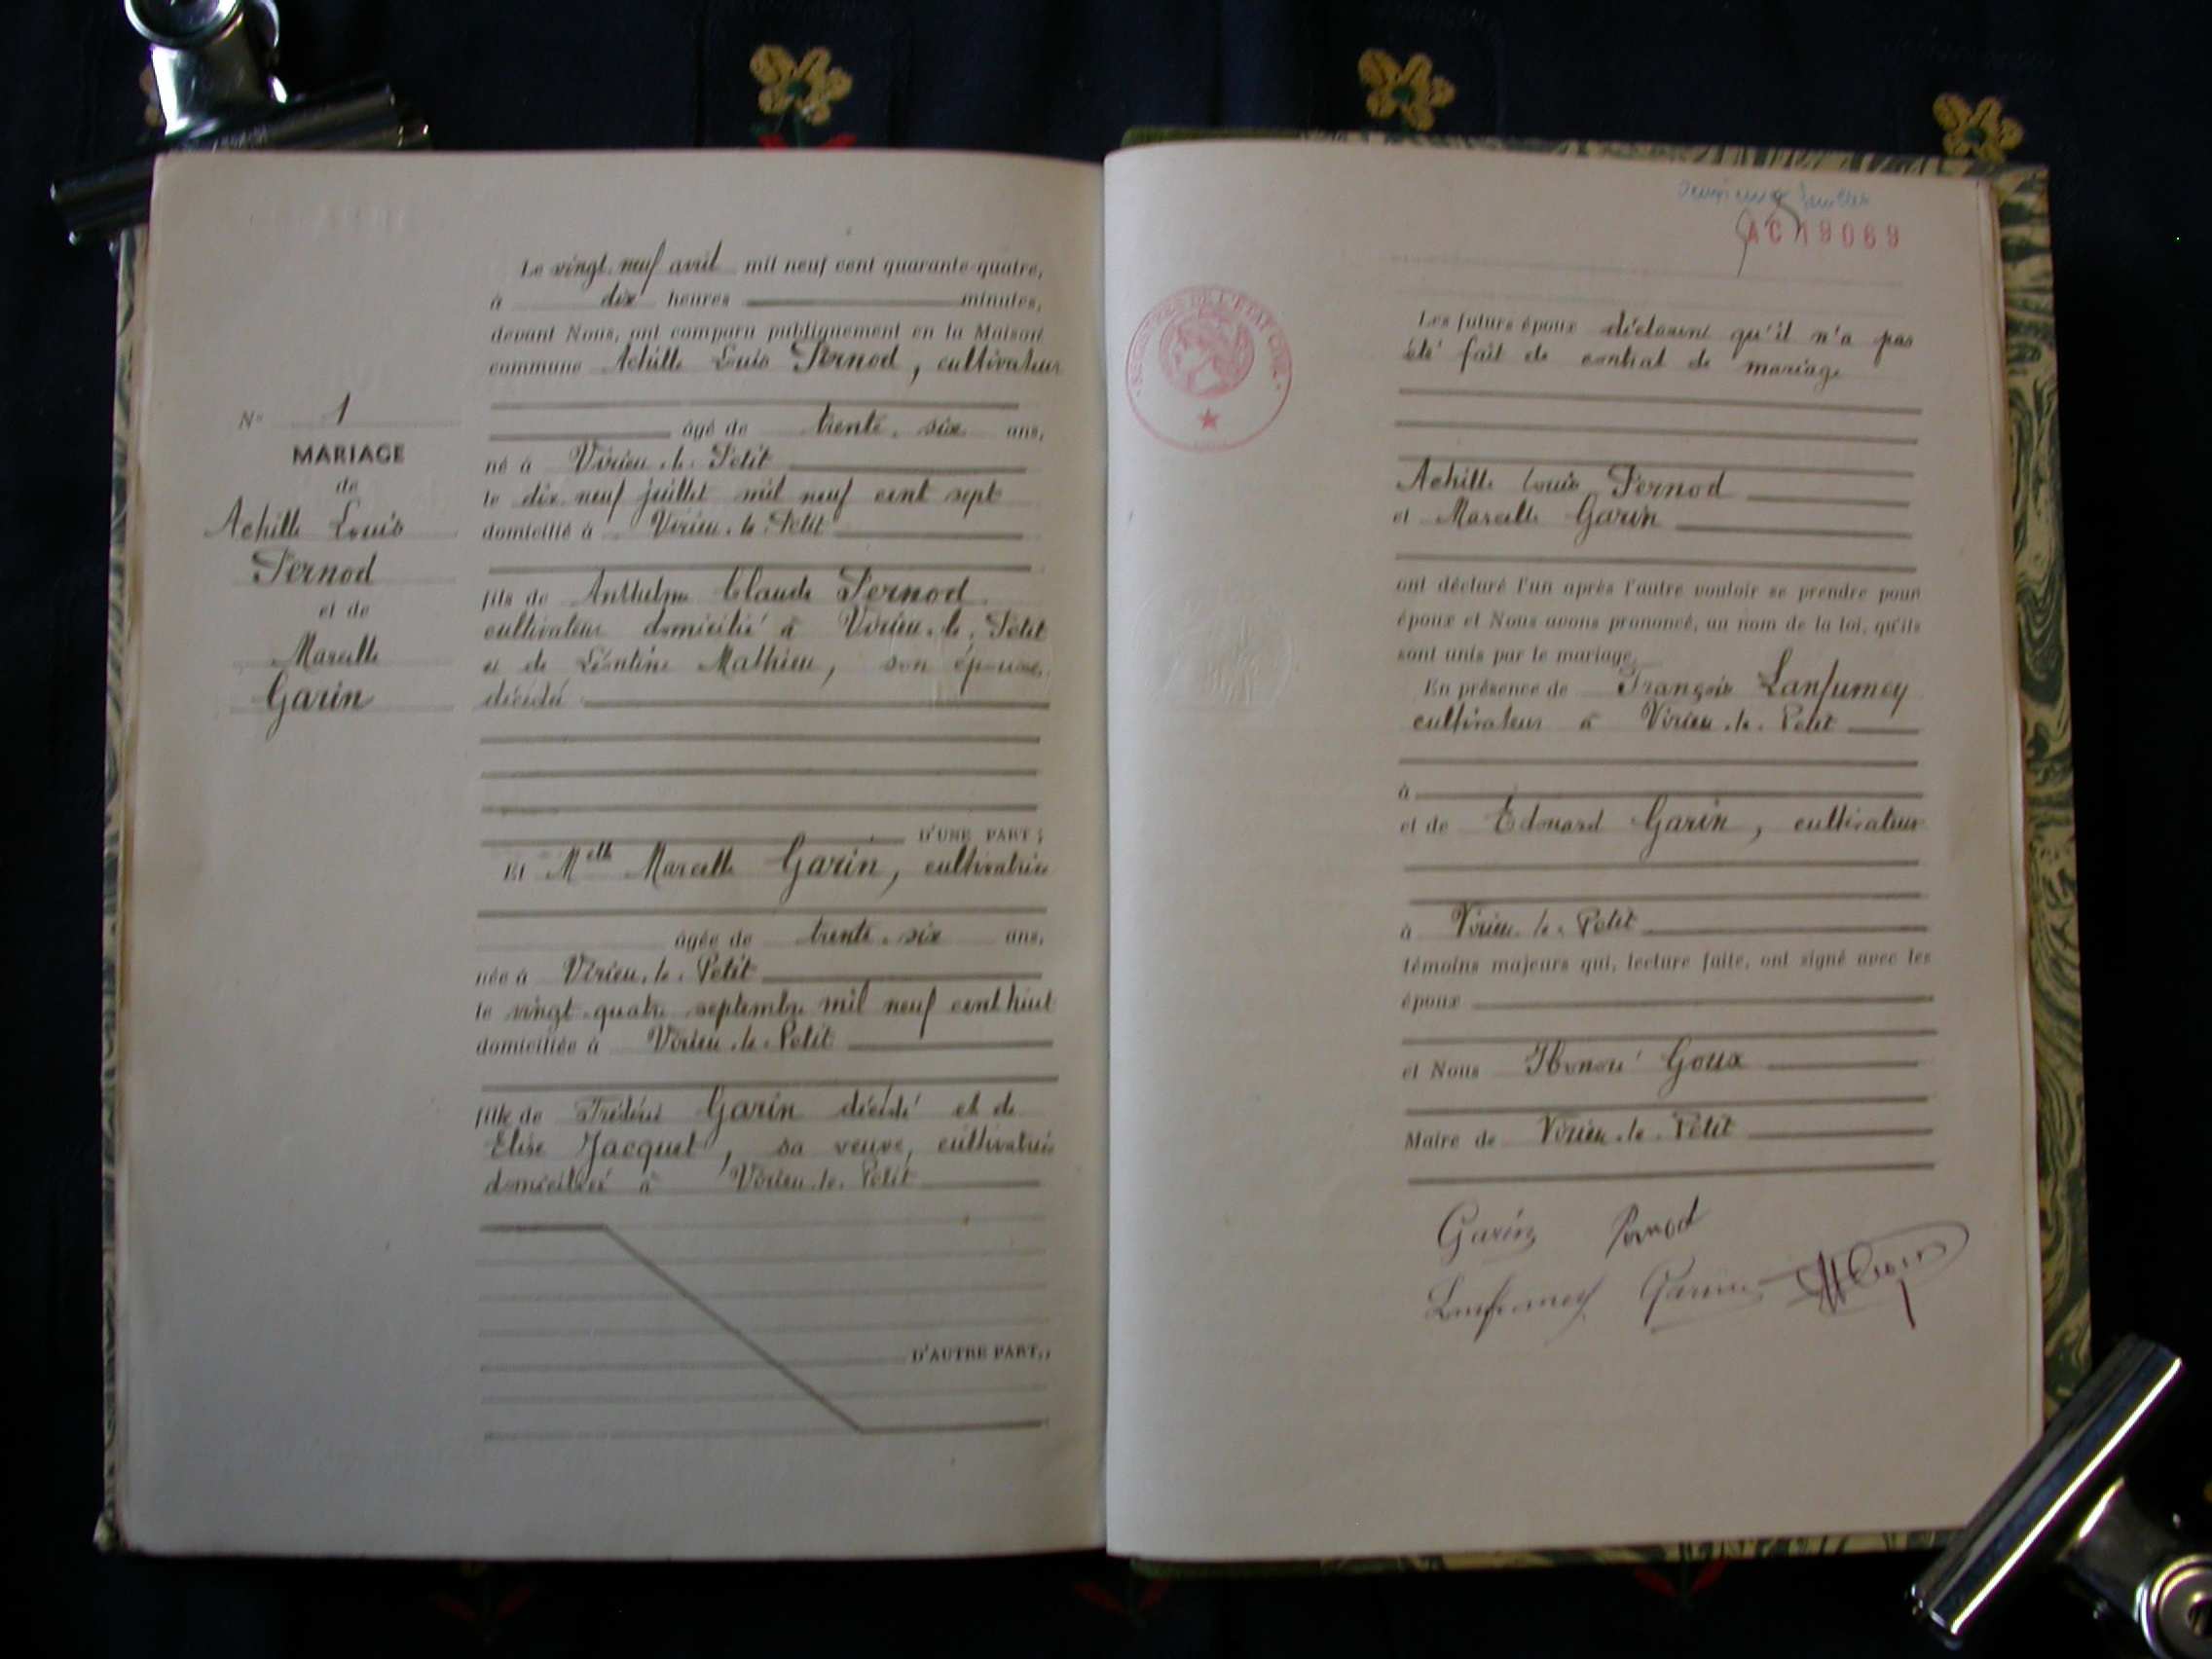 Le vingt neuf avril mil neuf cent quarante-quatre,
à dix heures minutes,
devant Nous, ont comparu publiquement en la Maison
commune Achille Louis Pernod, cultivateur
âgé de trente-six ans,
né à Virieu-le-Petit
le dix neuf juillet mil neuf cent sept
domicilié à Virieu-le-Petit
fils de Anthelme Claude Pernod
cultivateur domicilié à Virieu-le-Petit
et de Léontine Mathieu, son épouse,
décédée
D'UNE PART ;
Et Melle Marcelle Garin, cultivatrice
âgée de trente-six ans,
née à Virieu-le-Petit
le vingt-quatre septembre mil neuf cent huit
domiciliée à Virieu-le-Petit
fille de Frédéric Garin décédé et de
Elise Jacquet, sa veuve, cultivatrice
domiciliée à Virieu-le-Petit
D'AUTRE PART,
N° 1
MARIAGE
de
Achille Louis
Pernod
et de
Marcelle
Garin
AC 19069
REGISTRES DE L'ETAT CIVIL
Les futurs époux déclarent qu'il n'a pas
été fait de contrat de mariage
Achille Louis Pernod
et Marcelle Garin
ont déclaré l'un après l'autre vouloir se prendre pour
époux et Nous avons prononcé, au nom de la loi, qu'ils
sont unis par le mariage.
En présence de François Lanfumey
cultivateur à Virieu-le-Petit
à
et de Edouard Garin, cultivateur
à Virieu-le-Petit
témoins majeurs qui, lecture faite, ont signé avec les
époux
et Nous Honoré Goux
Maire de Virieu-le-Petit
Garin Pernod
Lanfumey Garin